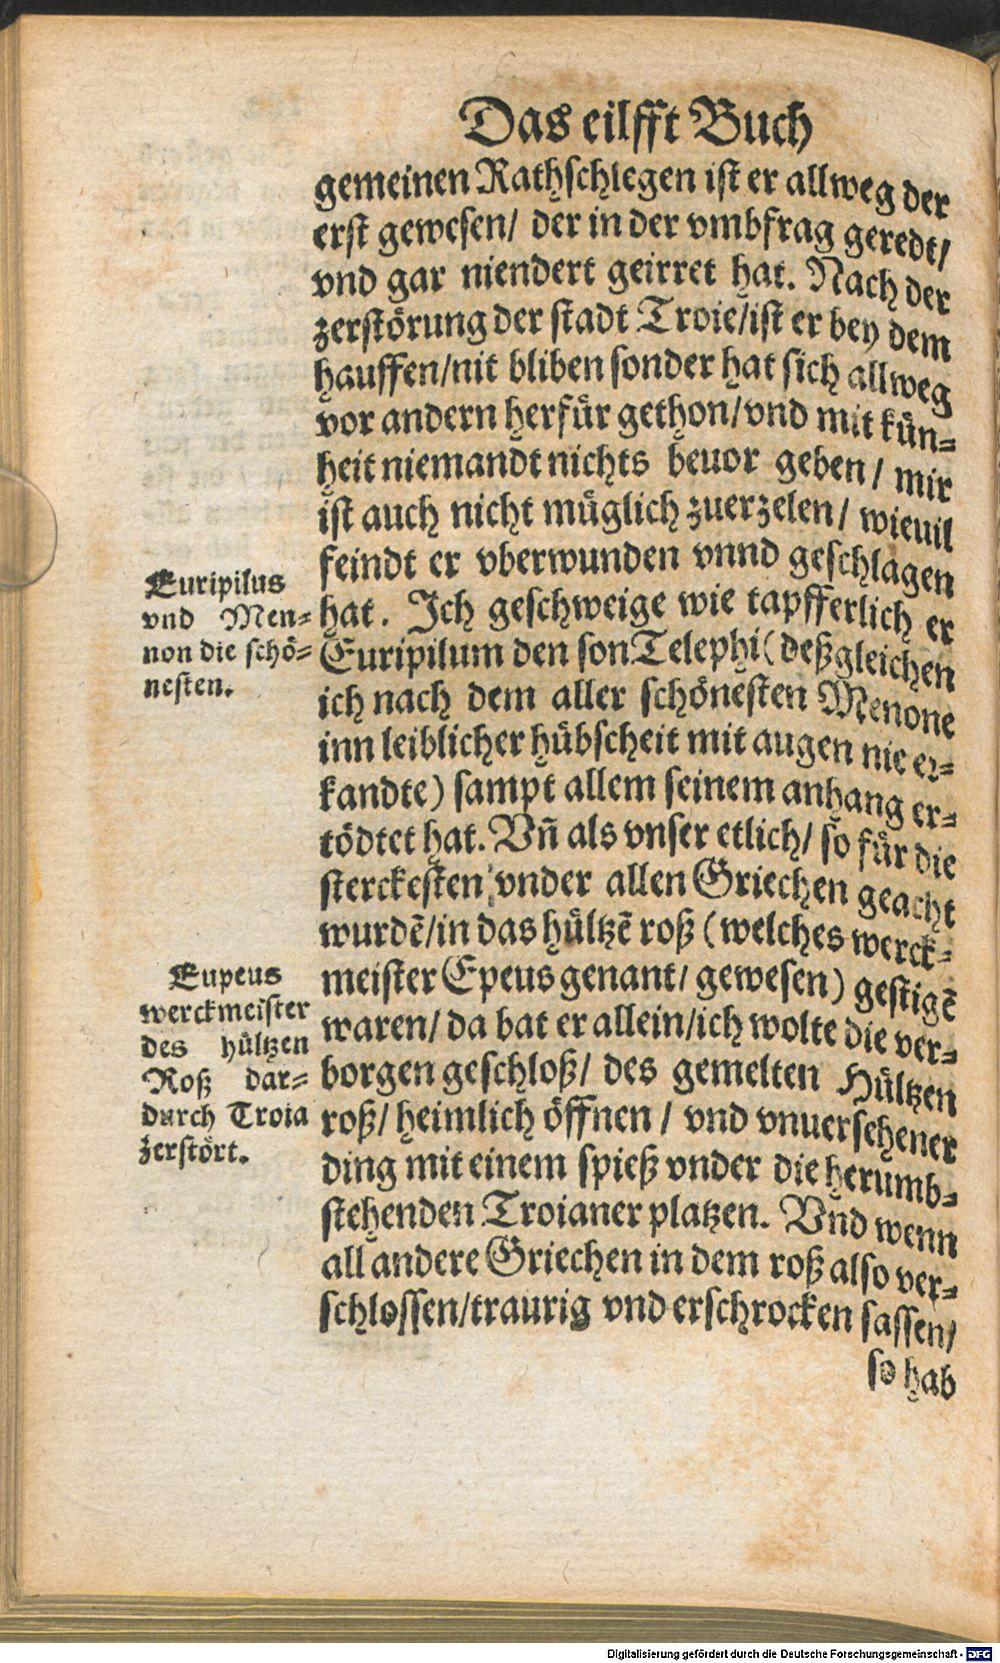 Das eilfft Buch
gemeinen Rathschlegen ist er allweg der
erst gewesen/ der in der vmbfrag geredt/
vnd gar niendert geirret hat. Nach der
zerstörung der stadt Troie/ist er bey dem
hauffen/nit bliben sonder hat sich allweg
vor andern herfür gethon/vnd mit kün-
heit niemandt nichts beuor geben/ mir
ist auch nicht müglich zuerzelen/ wieuil
feindt er vberwunden vnnd geschlagen
hat. Ich geschweige wie tapfferlich er
Euripilum den son Telephi (deßgleichen
ich nach dem aller schönesten Menone
inn leiblicher hübscheit mit augen nie er-
kandte) sampt allem seinem anhang er-
tödtet hat. Vñ als vnser etlich/ so für die
sterckesten vnder allen Griechen geacht
wurdē/in das hültzē roß (welches werck-
meister Epeus genant/ gewesen) gestigē
waren/ da bat er allein/ich wolte die ver-
borgen geschloß/ des gemelten Hültzen
roß/ heimlich öffnen/ vnd vnuersehener
ding mit einem spieß vnder die herumb-
stehenden Troianer platzen. Vnd wenn
all andere Griechen in dem roß also ver-
schlossen/traurig vnd erschrocken sassen/
so hab
Euripilus
vnd Men-
non die schö-
nesten.
Eupeus
werckmeister
des hültzen
Roß dar-
durch Troia
zerstört.
Digitalisierung gefördert durch die Deutsche Forschungsgemeinschaft - DFG